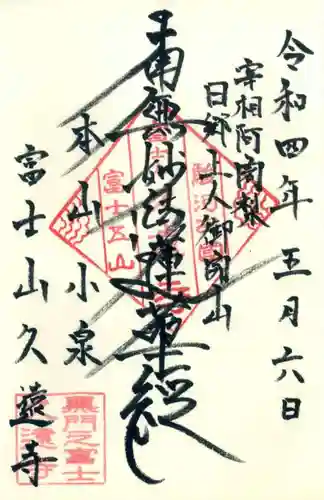 令和四年五月六日
宰相阿闍梨
日郷上人御開山
南無妙法蓮華経
本山小泉
富士山久遠寺
富士五山
黒門之富士